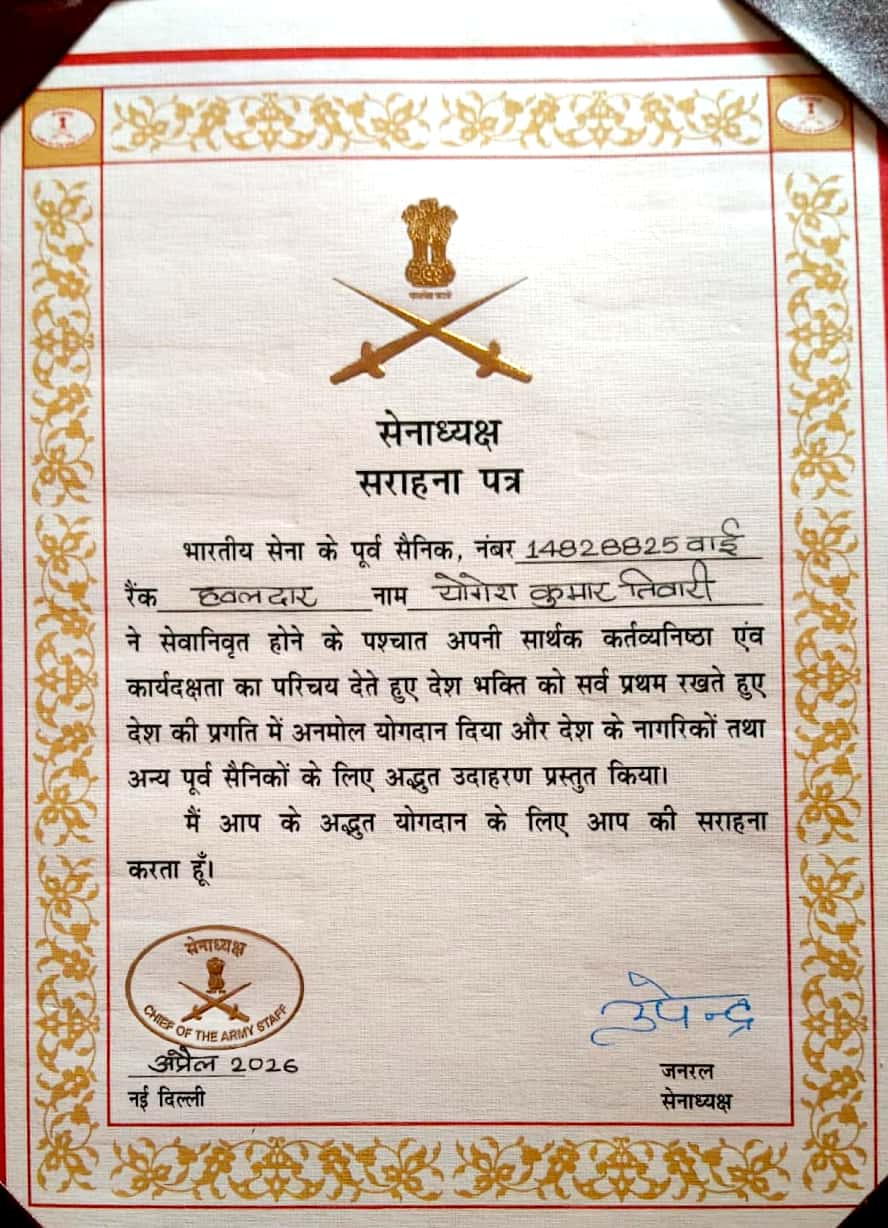 सेनाध्यक्ष
सराहना पत्र
भारतीय सेना के पूर्व सैनिक, नंबर 14828825 वाई
रैंक हवलदार नाम योगेश कुमार तिवारी
ने सेवानिवृत होने के पश्चात अपनी सार्थक कर्तव्यनिष्ठा एंव
कार्यदक्षता का परिचय देते हुए देश भक्ति को सर्व प्रथम रखते हुए
देश की प्रगति में अनमोल योगदान दिया और देश के नागरिकों तथा
अन्य पूर्व सैनिकों के लिए अद्भुत उदाहरण प्रस्तुत किया।
मैं आप के अद्भुत योगदान के लिए आप की सराहना
करता हूँ।
सेनाध्यक्ष
CHIEF OF THE ARMY STAFF
अप्रैल 2026
नई दिल्ली
उपेन्द्र
जनरल
सेनाध्यक्ष